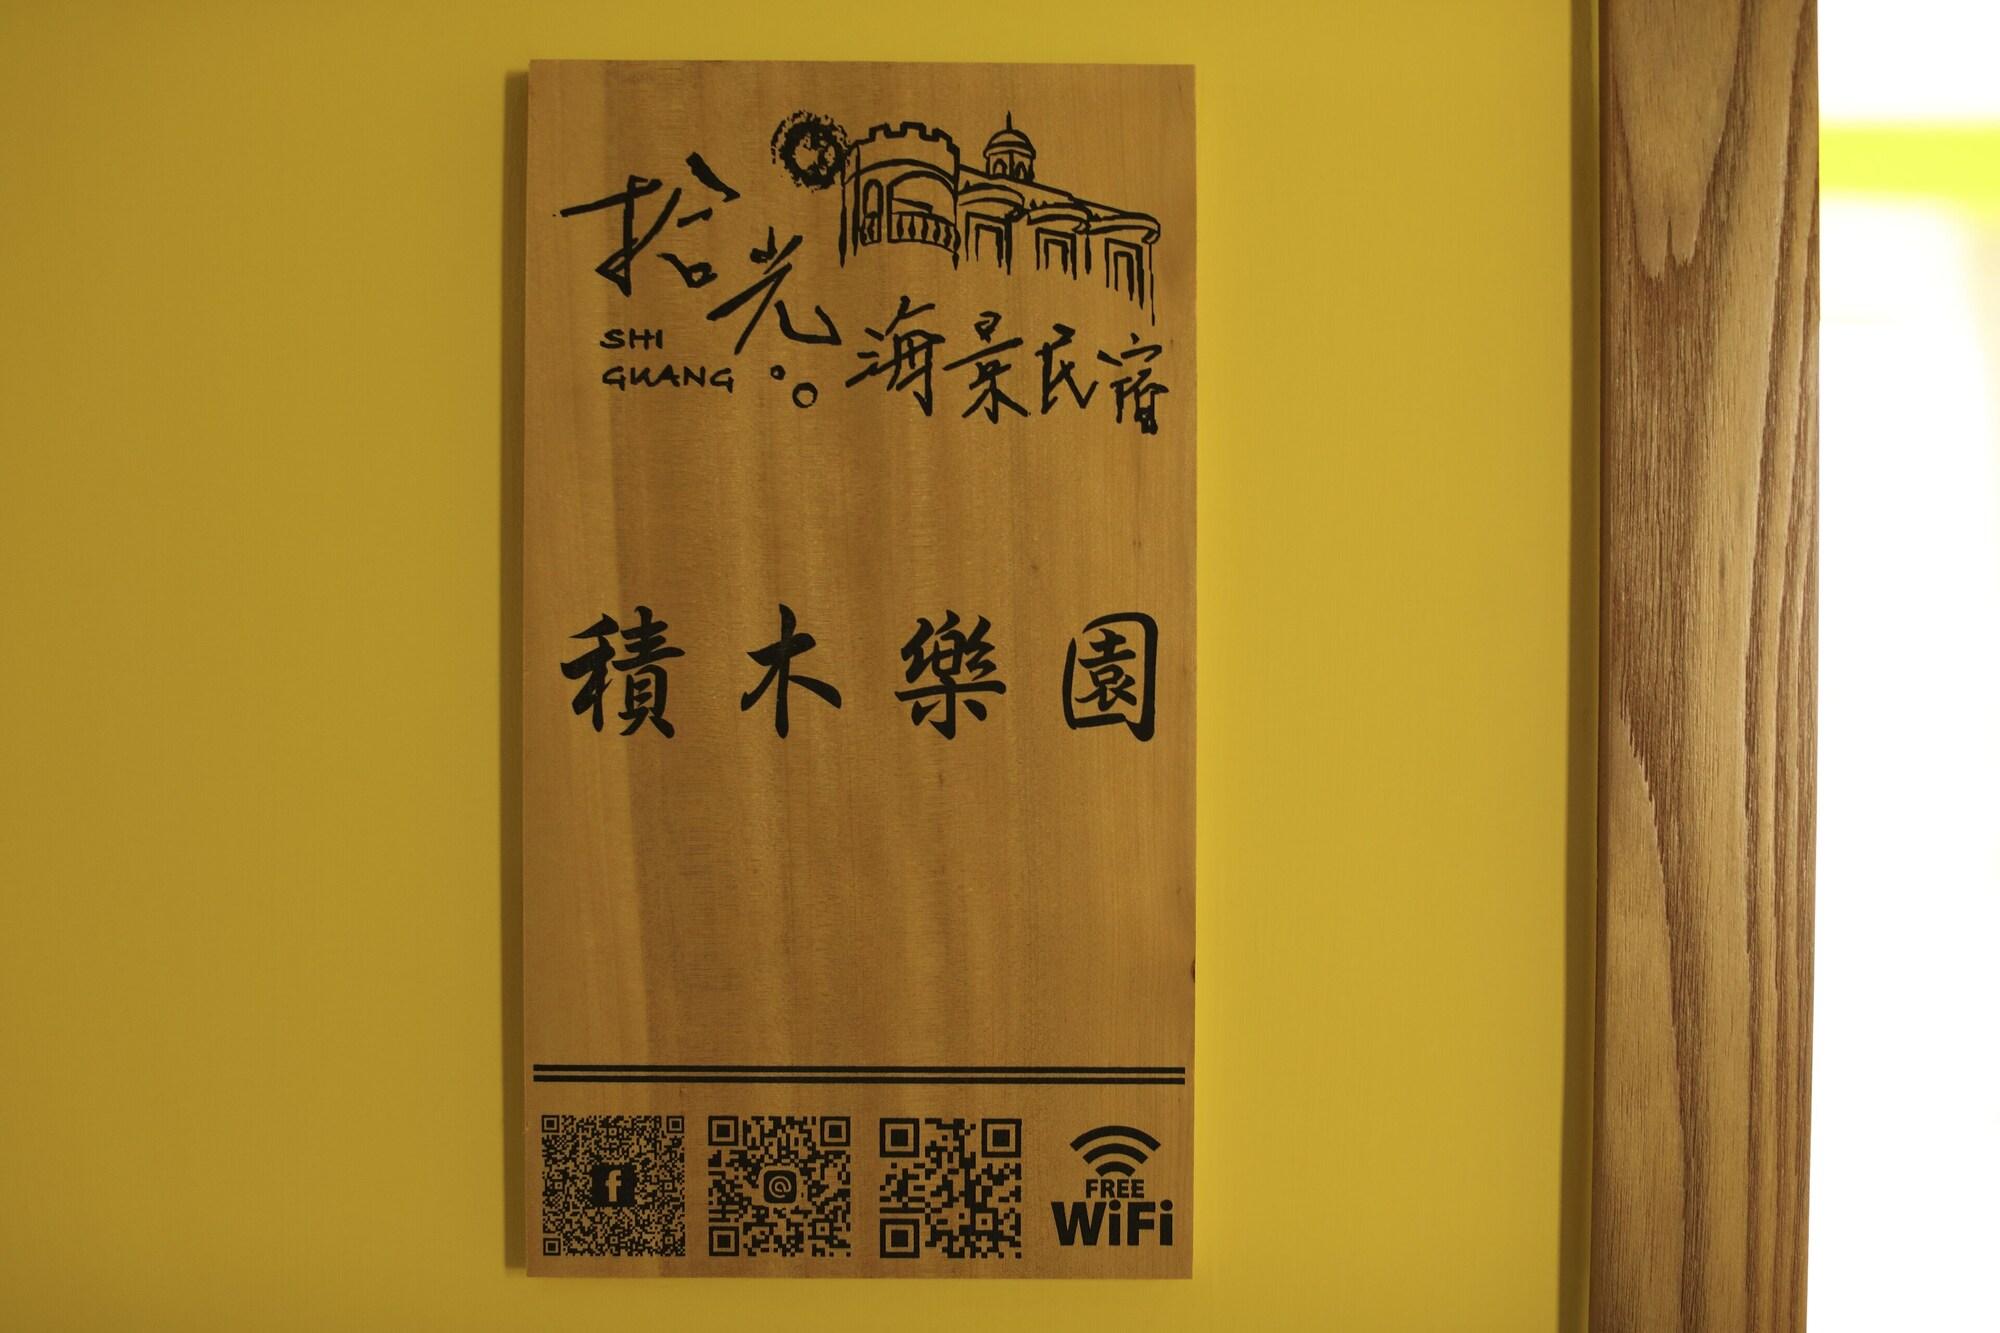 拾光
SHI
GUANG
海景民宿
積木樂園
f
@
FREE
WiFi